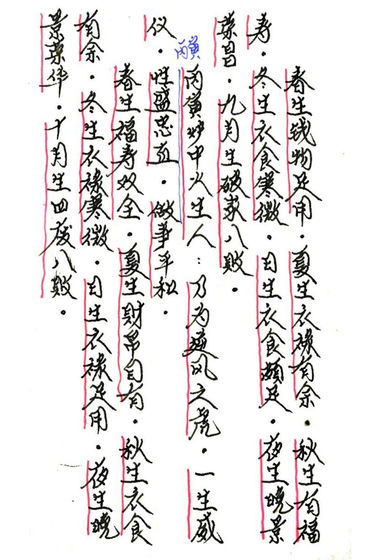 春生钱物足用。夏生衣禄有余。秋生有福
寿。冬生衣食寒微。日生衣食颇足。夜生晚景
荣昌。九月生破家八败。
丙寅
丙寅炉中火生人：乃为风之虎。一生威
仪。性盛忠直。做事平和。
春生福寿双全。夏生財帛自有。秋生衣食
有余。冬生衣禄寒微。日生衣禄足用。夜生晚
景荣华。十月生四废八败。